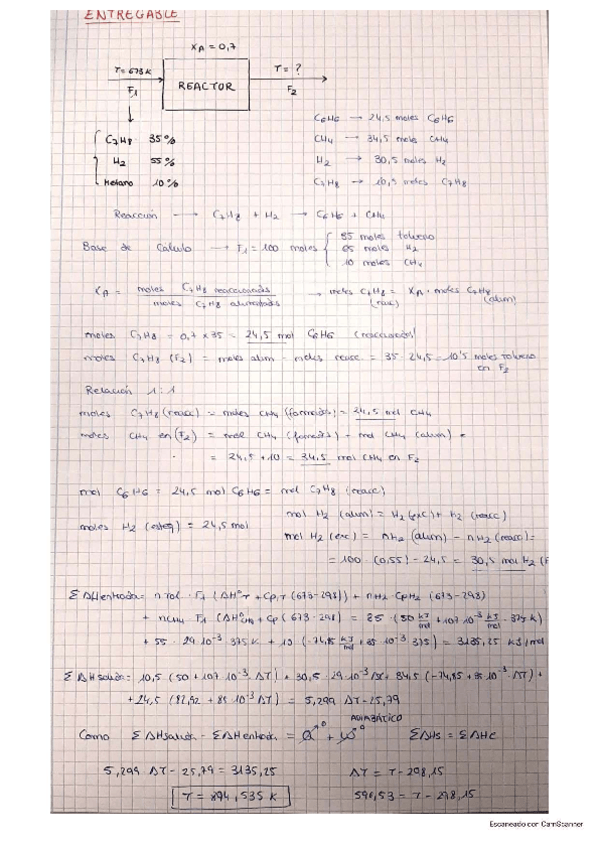 ENTREGABLE
XA = 0,7
T = 673 K
REACTOR
T = ?
F1
F2
C7H8 35%
H2 55%
Metano 10%
C6H6 → 24,5 moles C6H6
CH4 → 34,5 moles CH4
H2 → 30,5 moles H2
C7H8 → 10,5 moles C7H8
Reacción → C7H8 + H2 → C6H6 + CH4
Base de Cálculo → F1 = 100 moles
35 moles tolueno
55 moles H2
10 moles CH4
XA = moles C7H8 reaccionados / moles C7H8 alimentados → moles C7H8 (reac) = XA · moles C7H8 (alim)
moles C7H8 = 0,7 x 35 = 24,5 mol C6H6 (reaccionados)
moles C7H8 (F2) = moles alim - moles reacc. = 35 - 24,5 = 10'5 moles tolueno en F2
Relación 1:1
moles C7H8 (reacc) = moles CH4 (formados) = 24,5 mol CH4
moles CH4 en (F2) = mol CH4 (formados) - mol CH4 (alim) =
= 24,5 + 10 = 34,5 mol CH4 en F2
mol C6H6 = 24,5 mol C6H6 = mol C7H8 (reacc)
moles H2 (esteq) = 24,5 mol
mol H2 (alim) = H2 (exc) + H2 (reacc)
mol H2 (exc) = nH2 (alim) - nH2 (reacc) =
= 100 · (0,55) - 24,5 = 30,5 mol H2 (F
Σ ΔHentrada = n tol · F1 (ΔH°T + Cp,T (673-298)) + nH2 · CpH2 (673-298)
+ nCH4 F1 (ΔH°CH4 + Cp (673-298) = 35 · (50 kJ/mol + 107·10^-3 kJ/mol · 375 K)
+ 55 · 29·10^-3 · 375 K + 10 (-74,85 kJ/mol + 35·10^-3 · 375) = 3135,25 kJ/mol
Σ ΔHsalida = 10,5 (50 + 107·10^-3 · ΔT) + 30,5 · 29·10^-3 ΔT + 34,5 (-74,85 + 35·10^-3 · ΔT) +
+ 24,5 (82,92 + 85·10^-3 ΔT) = 5,299 ΔT - 25,79
Como Σ ΔHsalida - Σ ΔHentrada = Q + W
0
0
ADIABÁTICO
Σ ΔHs = Σ ΔHe
5,299 ΔT - 25,79 = 3135,25
ΔT = T - 298,15
T = 894,535 K
596,53 = T - 298,15
Escaneado con CamScanner